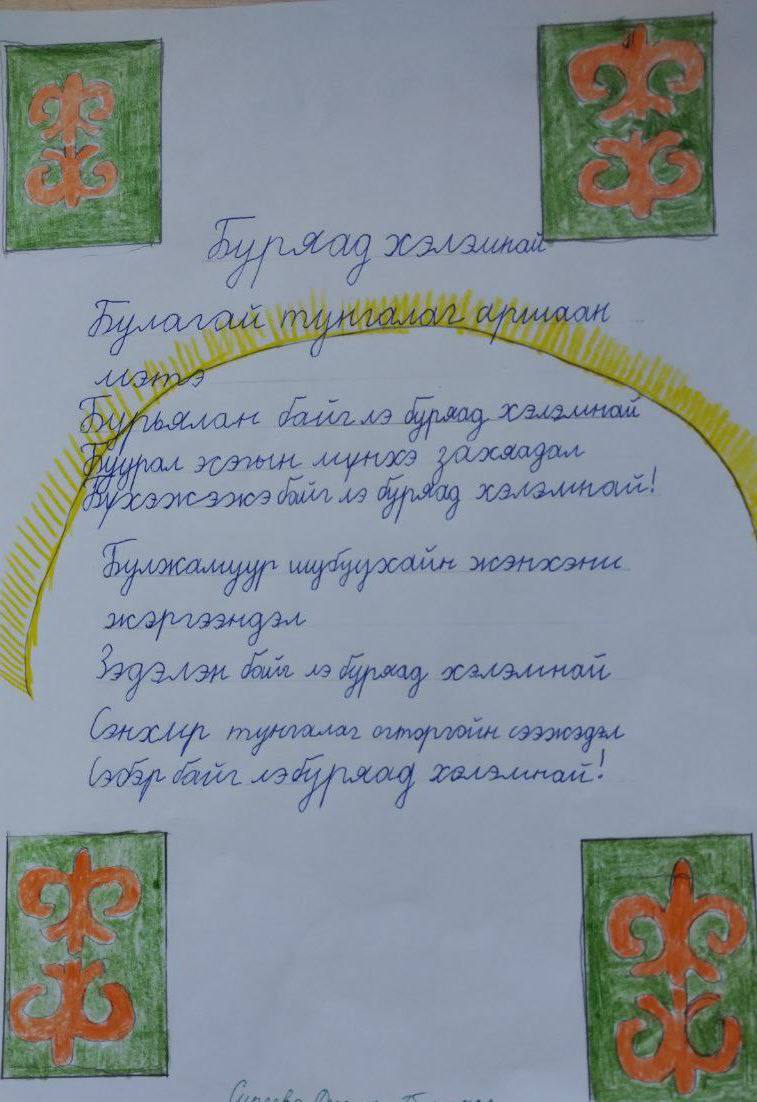 Буряад хэлэмнай
Булагай тунгалаг аршаан
мэтэ
Бурьялан байг лэ буряад хэлэмнай
Буурал эсэгын мүнхэ захяадал
Бүхэжэжэ байг лэ буряад хэлэмнай!
Булжамуур шубуухайн жэнхэни
жэргээндэл
Зэдэлэн байг лэ буряад хэлэмнай
Сэнхир тунгалаг огторгойн сээжэдэл
Сэбэр байг лэ буряад хэлэмнай!